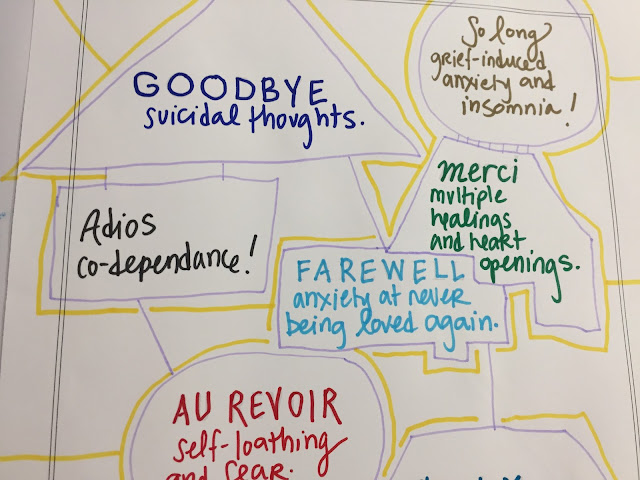 So long
grief-induced
anxiety and
insomnia!
GOODBYE
suicidal thoughts.
merci
multiple
healings
and heart
openings.
Adios
co-dependance!
FAREWELL
anxiety at never
being loved again.
AU REVOIR
self-loathing
and fear.